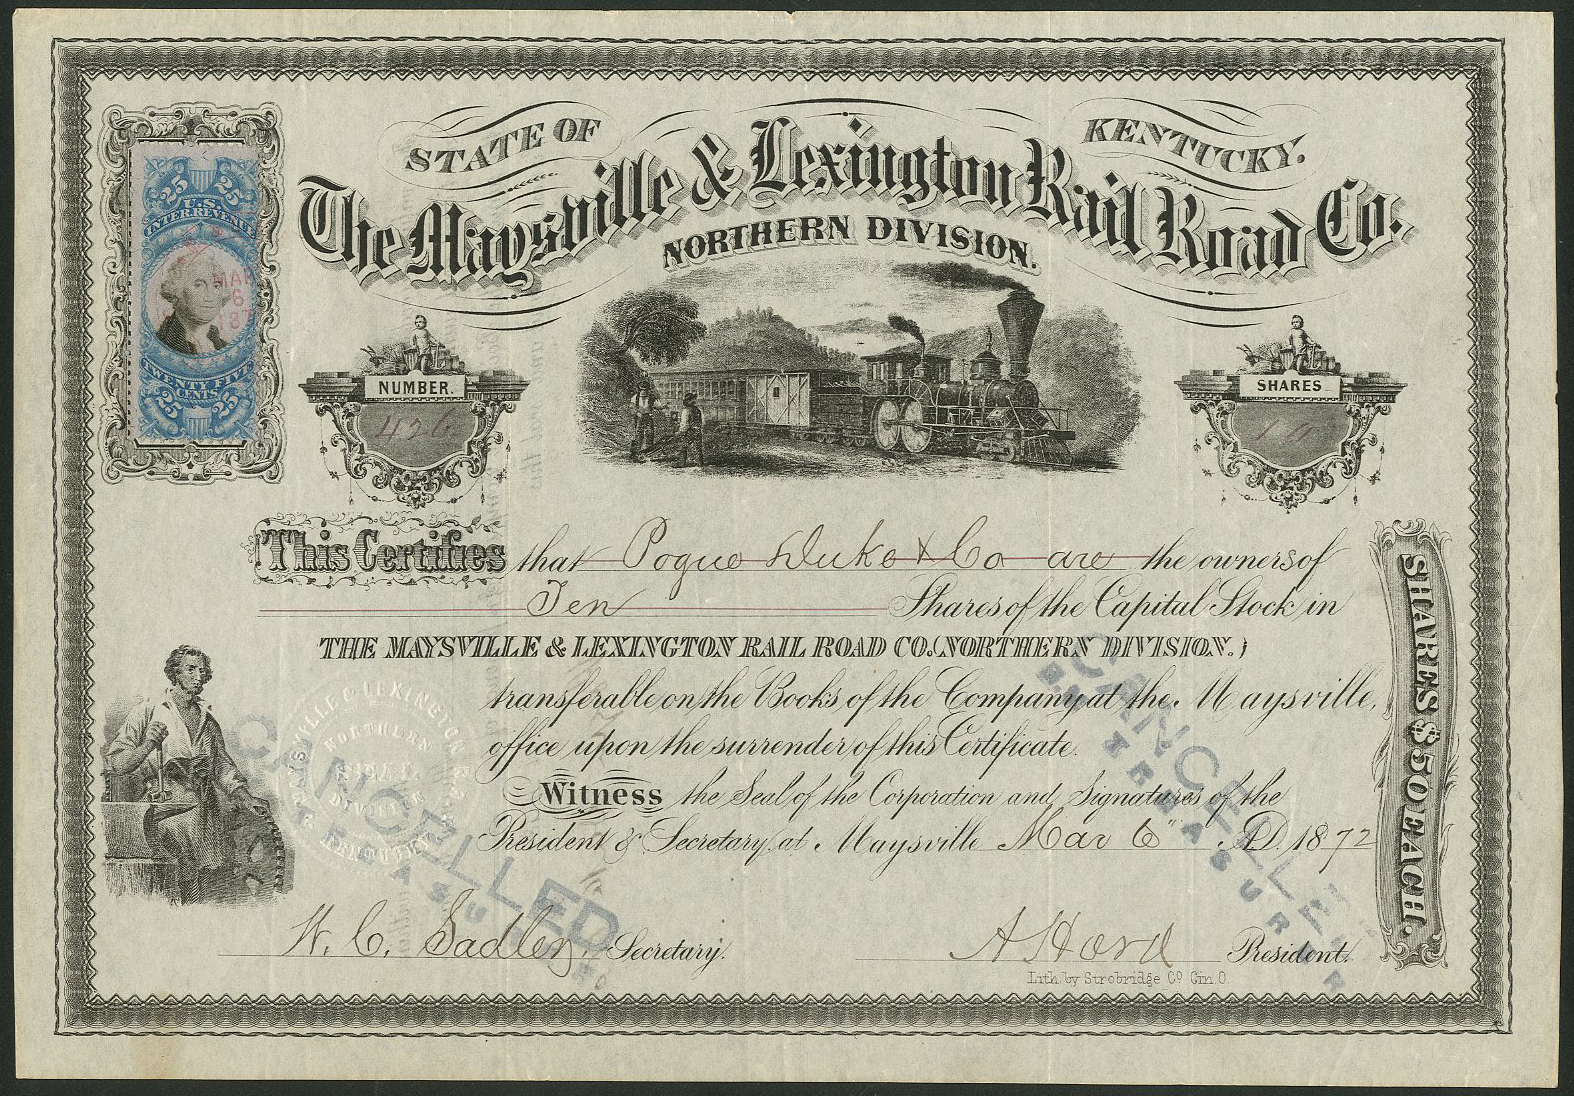 STATE OF KENTUCKY.
The Maysville & Lexington Rail Road Co.
NORTHERN DIVISION.
25 25
U.S.
INTER. REVENUE
MAR
6
187
TWENTY FIVE
CENTS
25 25
NUMBER.
426
SHARES
10
This Certifies that Pogue Duke & Co are the owners of
Ten Shares of the Capital Stock in
THE MAYSVILLE & LEXINGTON RAIL ROAD CO. (NORTHERN DIVISION.)
transferable on the Books of the Company at the Maysville,
office upon the surrender of this Certificate.
Witness the Seal of the Corporation and Signatures of the
President & Secretary at Maysville Mar 6" A.D. 1872
W. C. Sadler. Secretary.
A Hord President.
Lith. by Strobridge Co. Cin. O.
SHARES $50 EACH.
MAYSVILLE & LEXINGTON R.R. CO.
KENTUCKY
NORTHERN
DIVISION
CANCELLED
CANCELLED